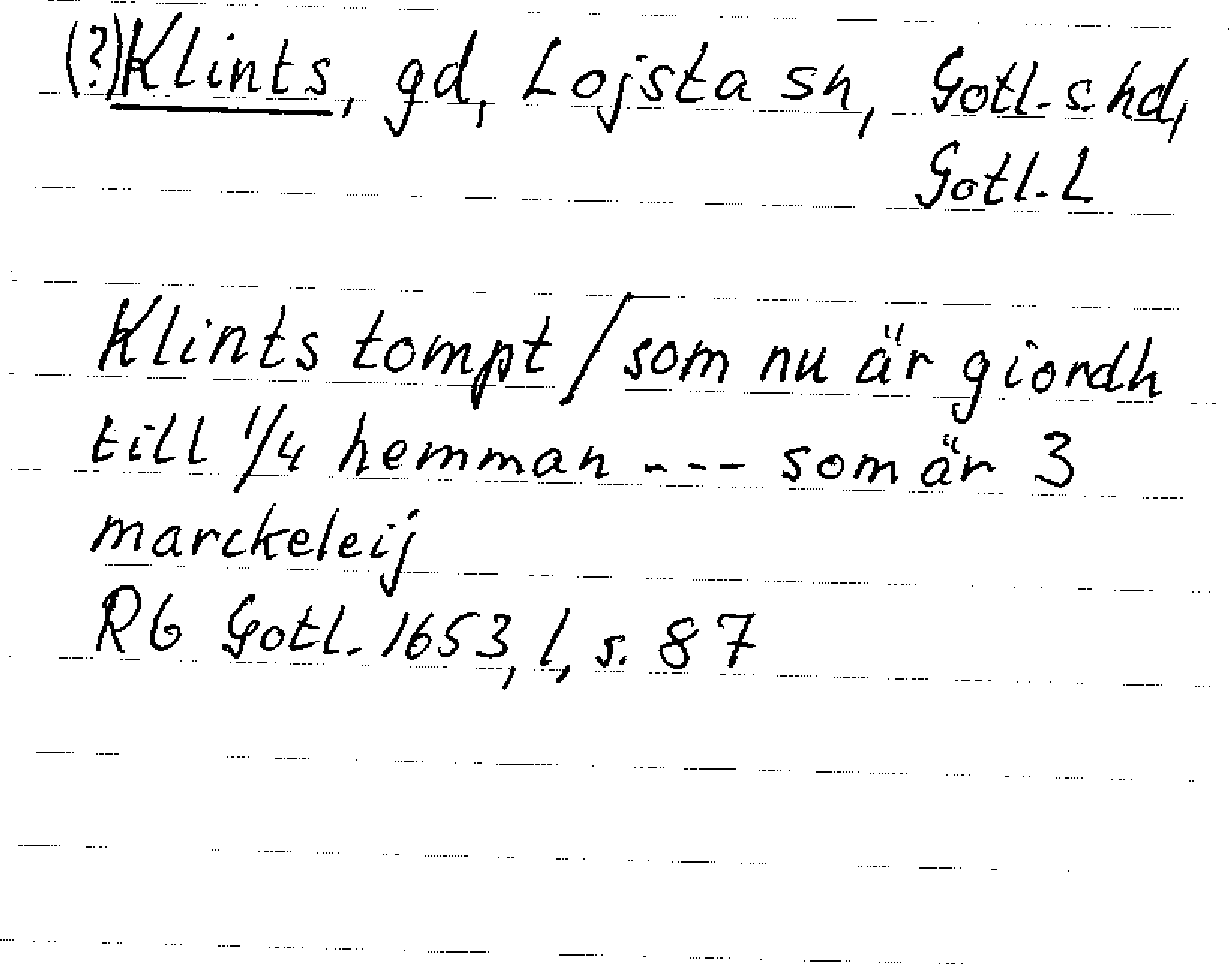 (?) Klints, gd, Lojsta sn, Gotl. s hd,
Gotl. L
Klints tompt / som nu är giordh
till 1/4 hemman --- som är 3
marckeleij
Rb Gotl. 1653, 1, s. 87